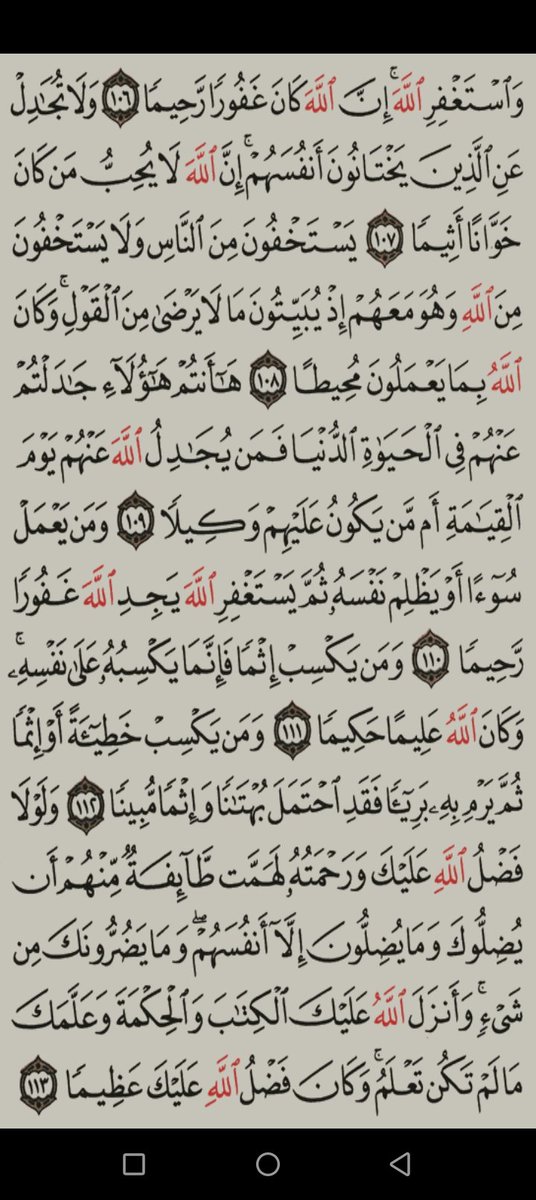 وَٱسۡتَغۡفِرِ ٱللَّهَۖ إِنَّ ٱللَّهَ كَانَ غَفُورٗا رَّحِيمٗا ١٠٦ وَلَا تُجَٰدِلۡ
عَنِ ٱلَّذِينَ يَخۡتَانُونَ أَنفُسَهُمۡۚ إِنَّ ٱللَّهَ لَا يُحِبُّ مَن كَانَ
خَوَّانًا أَثِيمٗا ١٠٧ يَسۡتَخۡفُونَ مِنَ ٱلنَّاسِ وَلَا يَسۡتَخۡفُونَ
مِنَ ٱللَّهِ وَهُوَ مَعَهُمۡ إِذۡ يُبَيِّتُونَ مَا لَا يَرۡضَىٰ مِنَ ٱلۡقَوۡلِۚ وَكَانَ
ٱللَّهُ بِمَا يَعۡمَلُونَ مُحِيطًا ١٠٨ هَٰٓأَنتُمۡ هَٰٓؤُلَآءِ جَٰدَلۡتُمۡ
عَنۡهُمۡ فِي ٱلۡحَيَوٰةِ ٱلدُّنۡيَا فَمَن يُجَٰدِلُ ٱللَّهَ عَنۡهُمۡ يَوۡمَ
ٱلۡقِيَٰمَةِ أَم مَّن يَكُونُ عَلَيۡهِمۡ وَكِيلٗا ١٠٩ وَمَن يَعۡمَلۡ
سُوٓءًا أَوۡ يَظۡلِمۡ نَفۡسَهُۥ ثُمَّ يَسۡتَغۡفِرِ ٱللَّهَ يَجِدِ ٱللَّهَ غَفُورٗا
رَّحِيمٗا ١١٠ وَمَن يَكۡسِبۡ إِثۡمٗا فَإِنَّمَا يَكۡسِبُهُۥ عَلَىٰ نَفۡسِهِۦۚ
وَكَانَ ٱللَّهُ عَلِيمًا حَكِيمٗا ١١١ وَمَن يَكۡسِبۡ خَطِيٓـَٔةً أَوۡ إِثۡمٗا
ثُمَّ يَرۡمِ بِهِۦ بَرِيٓـٔٗا فَقَدِ ٱحۡتَمَلَ بُهۡتَٰنٗا وَإِثۡمٗا مُّبِينٗا ١١٢ وَلَوۡلَا
فَضۡلُ ٱللَّهِ عَلَيۡكَ وَرَحۡمَتُهُۥ لَهَمَّت طَّآئِفَةٞ مِّنۡهُمۡ أَن
يُضِلُّوكَ وَمَا يُضِلُّونَ إِلَّآ أَنفُسَهُمۡۖ وَمَا يَضُرُّونَكَ مِن
شَيۡءٖۚ وَأَنزَلَ ٱللَّهُ عَلَيۡكَ ٱلۡكِتَٰبَ وَٱلۡحِكۡمَةَ وَعَلَّمَكَ
مَا لَمۡ تَكُن تَعۡلَمُۚ وَكَانَ فَضۡلُ ٱللَّهِ عَلَيۡكَ عَظِيمٗا ١١٣